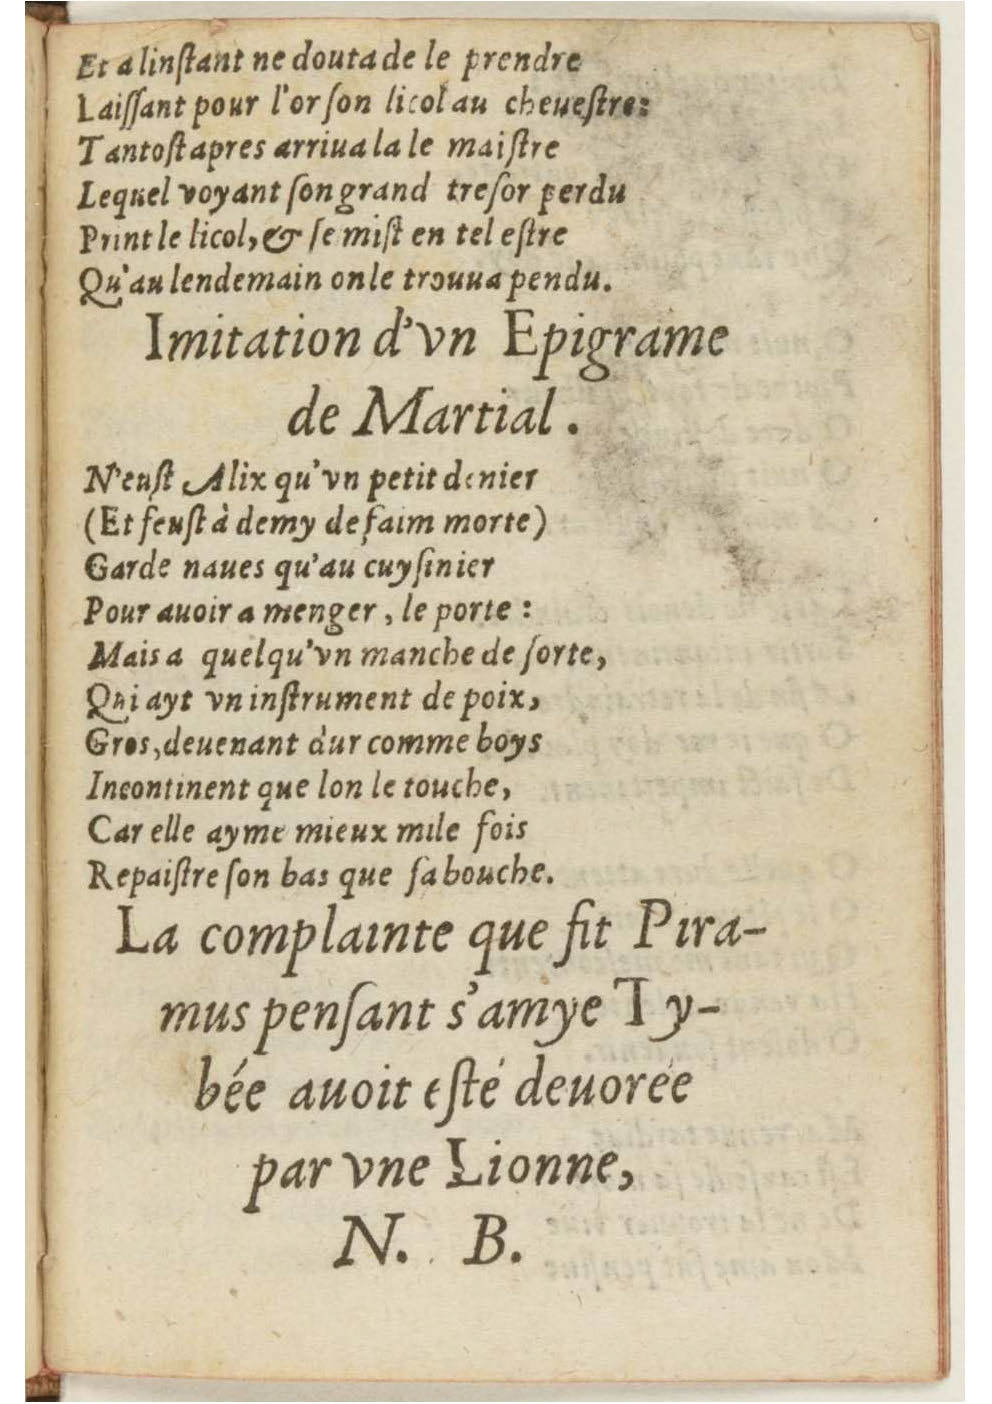 Et a linſtant ne douta de le prendre
Laiſſant pour l'or ſon licol au cheueſtre:
Tantoſt apres arriua la le maiſtre
Lequel voyant ſon grand treſor perdu
Print le licol, & ſe miſt en tel eſtre
Qu'au lendemain on le trouua pendu.
Imitation d'vn Epigrāme
de Martial.
N'euſt Alix qu'vn petit denier
(Et feuſt à demy de faim morte)
Garde naues qu'au cuyſinier
Pour auoir a menger, le porte:
Mais a quelqu'vn manche de ſorte,
Qui ayt vn inſtrument de poix,
Gros, deuenant dur comme boys
Incontinent que lon le touche,
Car elle ayme mieux mile fois
Repaiſtre ſon bas que ſa bouche.
La complainte que fit Pira-
mus penſant s'amye Ty-
bée auoit eſté deuorée
par vne Lionne,
N. B.